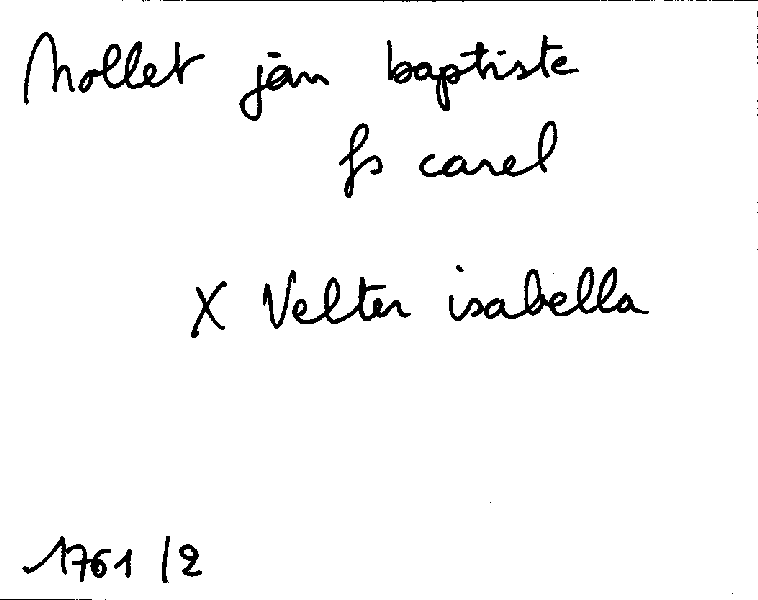 Mollet jan baptiste
fs carel
X Velter isabella
1761/2